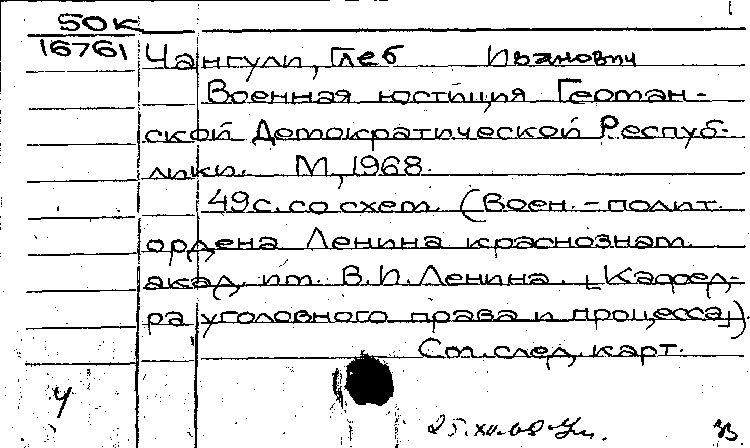 50к
16761 Чангули, Глеб Иванович
Военная юстиция Герман-
ской Демократической Респуб-
лики. М, 1968.
49с. со схем. (Воен.-полит.
ордена Ленина краснознам.
акад. им. В.И. Ленина. [Кафед-
ра уголовного права и процесса]).
См. след. карт.
Ч